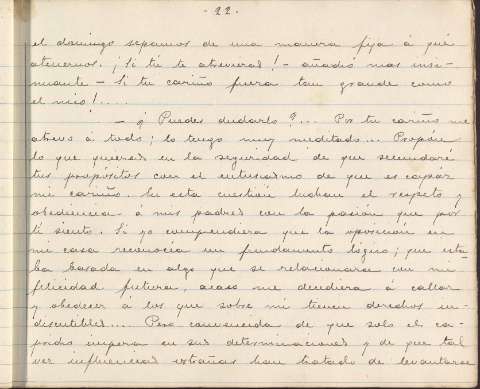 - 22 -
el domingo sepamos de una manera fija á qué
atenernos. ¡Si tú te atrevieras! - añadió mas insi-
nuante - Si tu cariño fuera tan grande como
el mio!....
- ¿Puedes dudarlo?... Por tu cariño me
atrevo á todo; lo tengo muy meditado... Propón
lo que quieras en la seguridad de que secundaré
tus propósitos con el entusiasmo de que es capáz
mi cariño. En esta cuestión luchan el respeto y
obediencia á mis padres con la pasión que por
tí siento. Si yo comprendiera que la oposición en
mi casa reconocía un fundamento lógico; que esta-
ba basada en algo que se relacionara con mi
felicidad futura, acaso me decidiera á callar
y obedecer á los que sobre mi tienen derechos in-
discutibles... Pero convencida de que solo el ca-
pricho impera en sus determinaciones y de que tal
vez influencias extrañas han tratado de levantarse